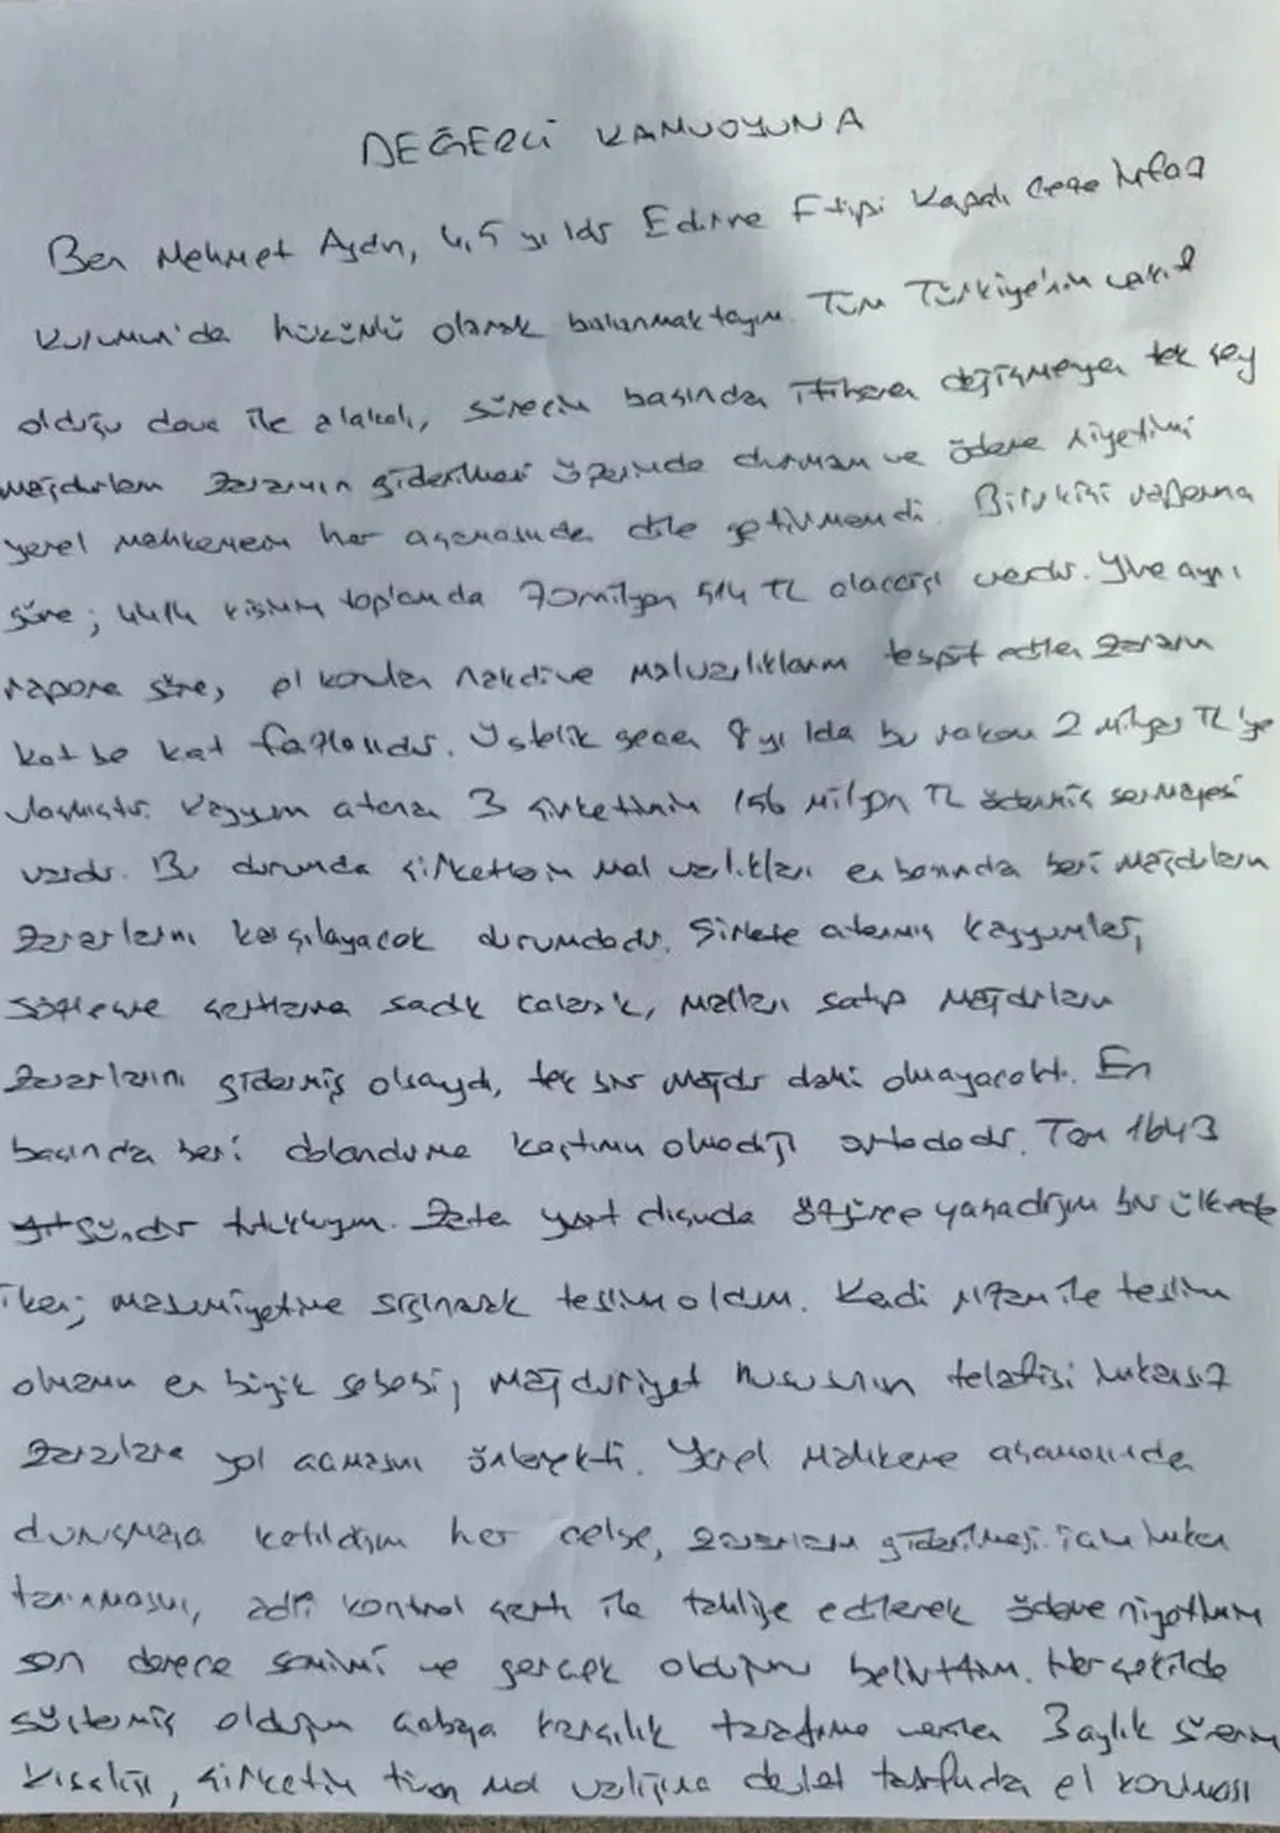 DEĞERLİ KAMUOYUNA
Ben Mehmet Aydın, 4,5 yıldır Edirne F tipi Kapalı Ceza İnfaz
Kurumun'da hükümlü olarak bulunmaktayım. Tüm Türkiye'nin vakıf
olduğu dava ile alakalı, sürecin başından itibaren değişmeyen tek şey
mağdurların zararının giderilmesi üzerinde durmam ve ödeme niyetimi
yerel mahkemenin her aşamasında dile getirmemdi. Bilirkişi raporuna
göre; 4414 kişinin toplamda 70 milyon 514 TL alacağı vardır. Yine aynı
rapora göre, el konulan nakdi ve malvarlıkların tespit edilen zararın
kat be kat fazlasıdır. Üstelik geçen 8 yılda bu rakam 2 milyar TL'ye
ulaşmıştır. Kayyum atanan 3 şirketimin 156 milyon TL ödenmiş sermayesi
vardır. Bu durumda şirketlerin mal varlıkları en başında beri mağdurların
zararlarını karşılayacak durumdadır. Şirkete atanmış kayyumlar,
sözleşme şartlarına sadık kalarak, malları satıp mağdurların
zararlarını gidermiş olsaydı, tek bir mağdur dahi olmayacaktı. En
başında beri dolandırma kastımın olmadığı ortadadır. Tam 1643
gündür tutukluyum. Zaten yurt dışında özgürce yaşadığım bir ülkede
iken; masumiyetime sığınarak teslim oldum. Kendi rızam ile teslim
olmamın en büyük sebebi, mağduriyet hususunun telafisi imkansız
zararlara yol açmasını önlemekti. Yerel mahkeme aşamasında
duruşmaya katıldığım her celse, zararların giderilmesi için imkan
tanınmasını, adli kontrol şartı ile tahliye edilerek ödeme niyetimin
son derece samimi ve gerçek olduğunu belirttim. Her şekilde
göstermiş olduğum çabaya karşılık tarafıma verilen 3 aylık sürenin
kısalığı, şirketin tüm mal varlığına devlet tarafında el konulması